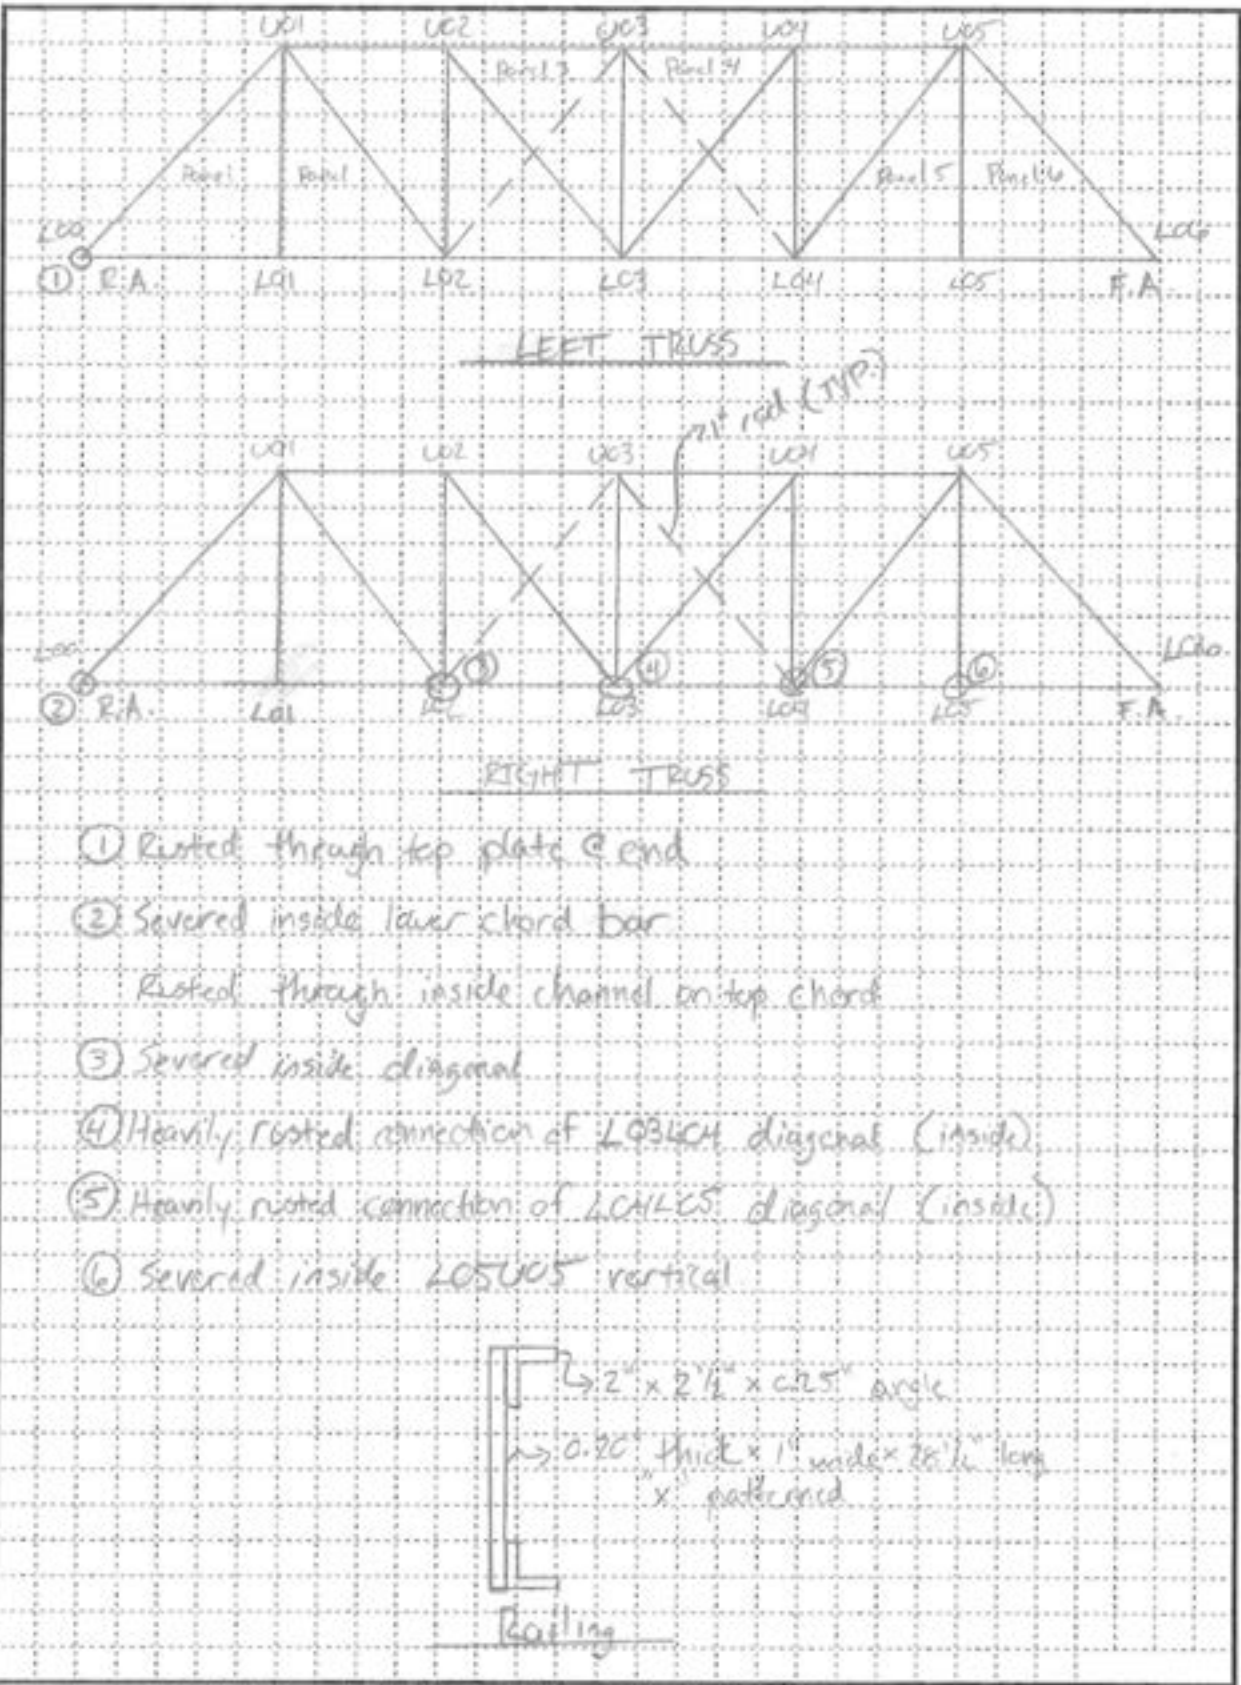 U01 U02 U03 U04 U05
Panel 3 Panel 4
Panel Panel Panel 5 Panel 6
L00 L06
① R.A. L01 L02 L03 L04 L05 F.A.
LEFT TRUSS
1" rod (TYP.)
U01 U02 U03 U04 U05
L00 ③ ④ ⑤ ⑥ L06
② R.A. L01 L02 L03 L04 L05 F.A.
RIGHT TRUSS
① Rusted through top plate @ end
② Severed inside lower chord bar
Rusted through inside channel on top chord
③ Severed inside diagonal
④ Heavily rusted connection of L03L04 diagonal (inside)
⑤ Heavily rusted connection of L04L05 diagonal (inside)
⑥ Severed inside L05U05 vertical
2" x 2 1/2" x 0.25" angle
0.20" thick x 1" wide x 28 1/2" long
"x" patterned
Railing